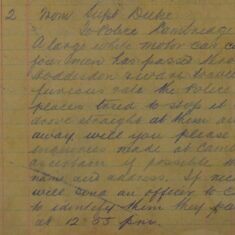 2 From Supt Duke
To Police Pembridge
A large white motor car co
four men has passed thro
Hoddesdon towa
furious rate the Police
places tried to stop it
drove straight at them an
away. will you please
enquiries made at Came
ascertain if possible
name and address. If nec
will send an officer to C
to identify them they pa
at 12.55 pm.